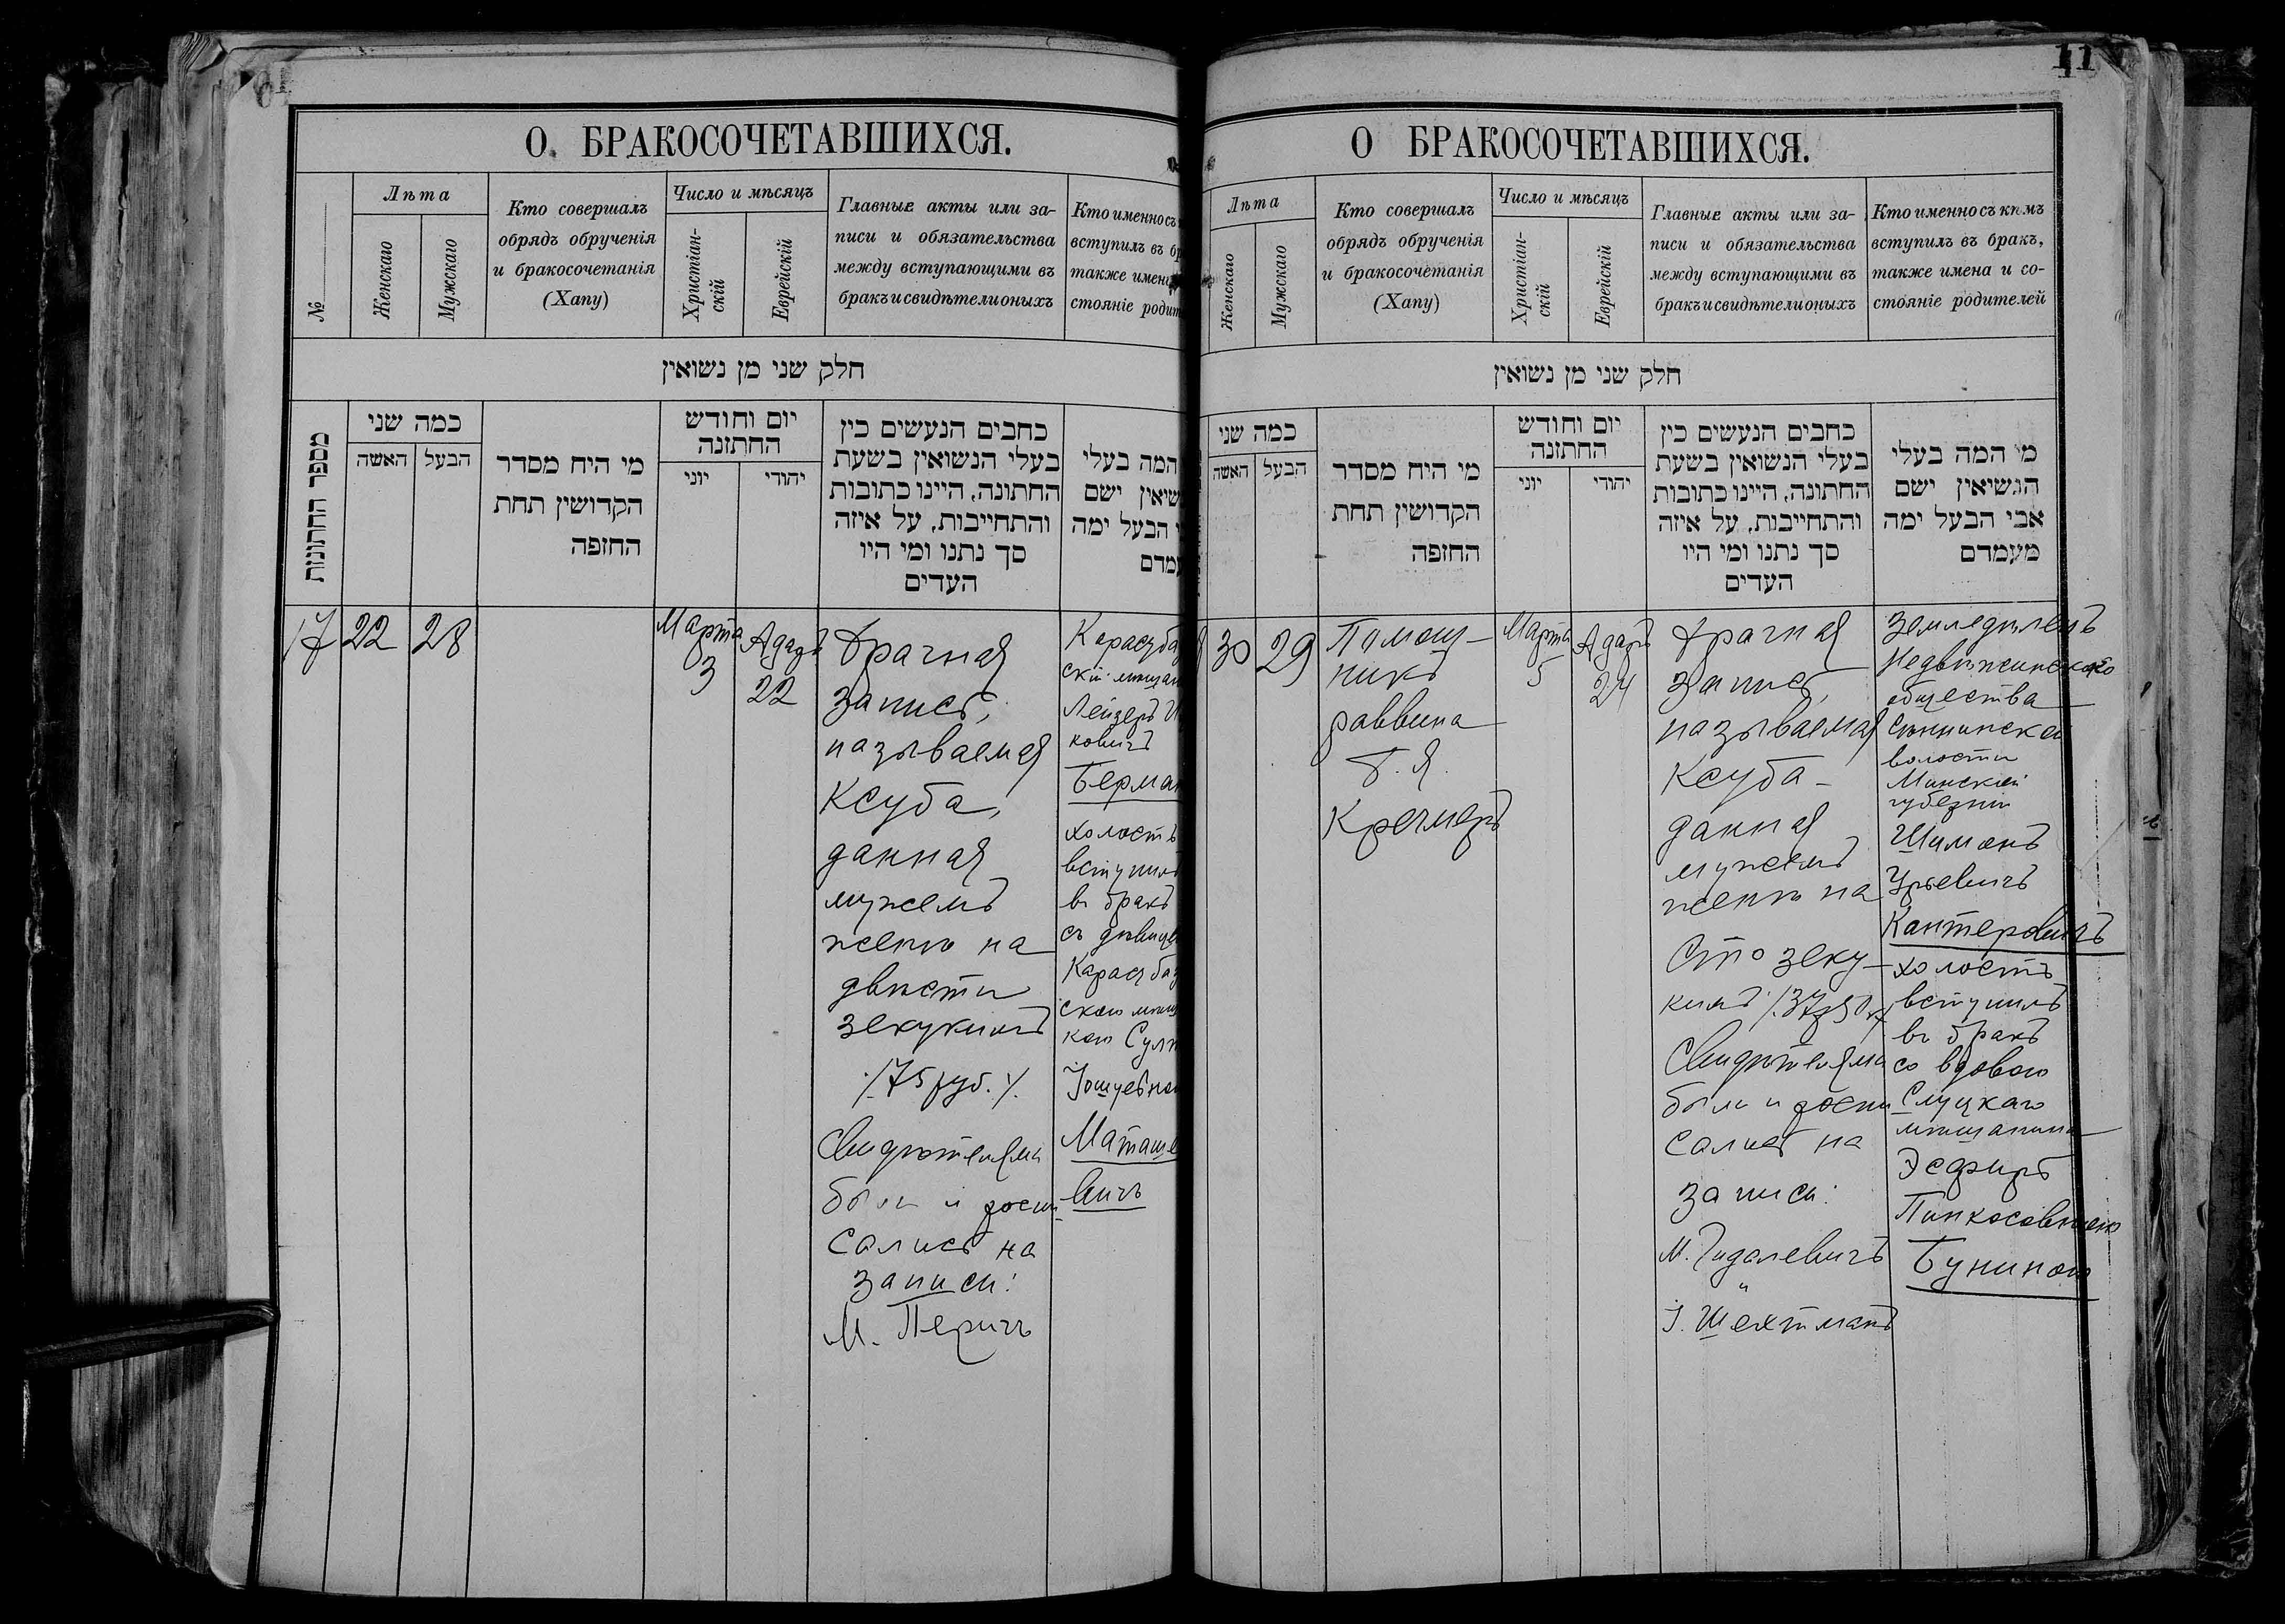 О. БРАКОСОЧЕТАВШИХСЯ.
№
Лѣта
Женскаго
Мужскаго
Кто совершалъ
обрядъ обрученія
и бракосочетанія
(Хапу)
Число и мѣсяцъ
Христіан-
скій
Еврейскій
Главные акты или за-
писи и обязательства
между вступающими въ
бракъ и свидѣтели оныхъ
Кто именно съ
вступилъ въ бр
также имен
стояніе родит
חלק שני מן נשואין
מספר החתונות
כמה שני
האשה
הבעל
מי היח מסדר
הקדושין תחת
החזפה
יום וחודש
החתזנה
יוני
יהודי
כחבים הנעשים כין
בעלי הנשואין בשעת
החתונה, היינו כתובות
והתחייבות, על איזה
סך נתנו ומי היו
העדים
המה בעלי
שיאין ישם
הבעל ימה
עמדם
17
22
28
Марта
3
Адаръ
22
Брачная
запись,
называемая
Ксуба,
данная
мужемъ
женѣ на
двѣсти
зекукимъ
/.75 руб./.
Свидѣтелями
были и роспи-
сались на
записи:
М. Перичъ
Карасубаз
скій мѣщан
Лейзеръ И
ковичъ
Берман
холостъ
вступилъ
въ бракъ
съ дѣвице
Карасубаз
скою мѣщ
кою Султ
Іошуевно
Маташе
вичъ
11
О БРАКОСОЧЕТАВШИХСЯ.
Лѣта
Женскаго
Мужскаго
Кто совершалъ
обрядъ обрученія
и бракосочетанія
(Хапу)
Число и мѣсяцъ
Христіан-
скій
Еврейскій
Главные акты или за-
писи и обязательства
между вступающими въ
бракъ и свидѣтели оныхъ
Кто именно съ кѣмъ
вступилъ въ бракъ,
также имена и со-
стояніе родителей
חלק שני מן נשואין
כמה שני
האשה
הבעל
מי היח מסדר
הקדושין תחת
החזפה
יום וחודש
החתזנה
יוני
יהודי
כחבים הנעשים כין
בעלי הנשואין בשעת
החתונה, היינו כתובות
והתחייבות, על איזה
סך נתנו ומי היו
העדים
מי המה בעלי
הגשיאין ישם
אבי הבעל ימה
מעמדם
30
29
Помощ-
никъ
раввина
Б. Я.
Кречмеръ
Марта
5
Адаръ
24
Брачная
запись,
называемая
Ксуба-
данная
мужемъ
женѣ на
Сто зеку-
кимъ /.37р50к
Свидѣтелями
были и роспи
сались на
записи:
М. Гидалевичъ
и
І. Шехтманъ
Земледѣлецъ
общества
волости
Минской
губерніи
Шимонъ
Уріевичъ
Кантеровичъ
холостъ
вступилъ
въ бракъ
со вдовою
Слуцкаго
мѣщанина
Эсфирь
Пинхосовною
Буниною